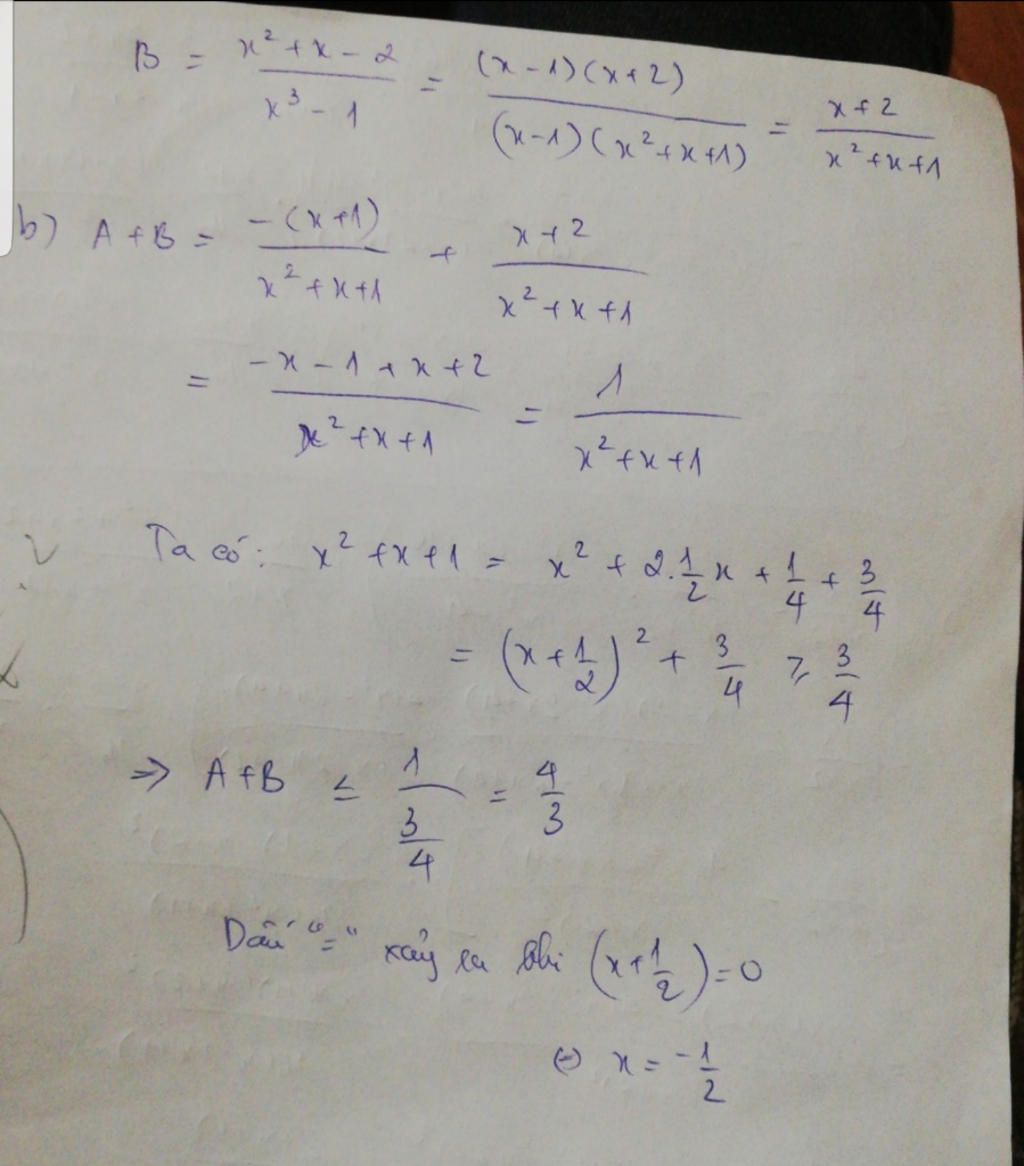 B = \frac{x^2+x-2}{x^3-1} = \frac{(x-1)(x+2)}{(x-1)(x^2+x+1)} = \frac{x+2}{x^2+x+1}
b) A+B = \frac{-(x+1)}{x^2+x+1} + \frac{x+2}{x^2+x+1}
= \frac{-x-1+x+2}{x^2+x+1} = \frac{1}{x^2+x+1}
Ta có: x^2+x+1 = x^2 + 2.\frac{1}{2}x + \frac{1}{4} + \frac{3}{4}
= (x+\frac{1}{2})^2 + \frac{3}{4} ⩾ \frac{3}{4}
⇒ A+B ≤ \frac{1}{\frac{3}{4}} = \frac{4}{3}
Dấu "=" xảy ra khi (x+\frac{1}{2})=0
⇔ x = -\frac{1}{2}